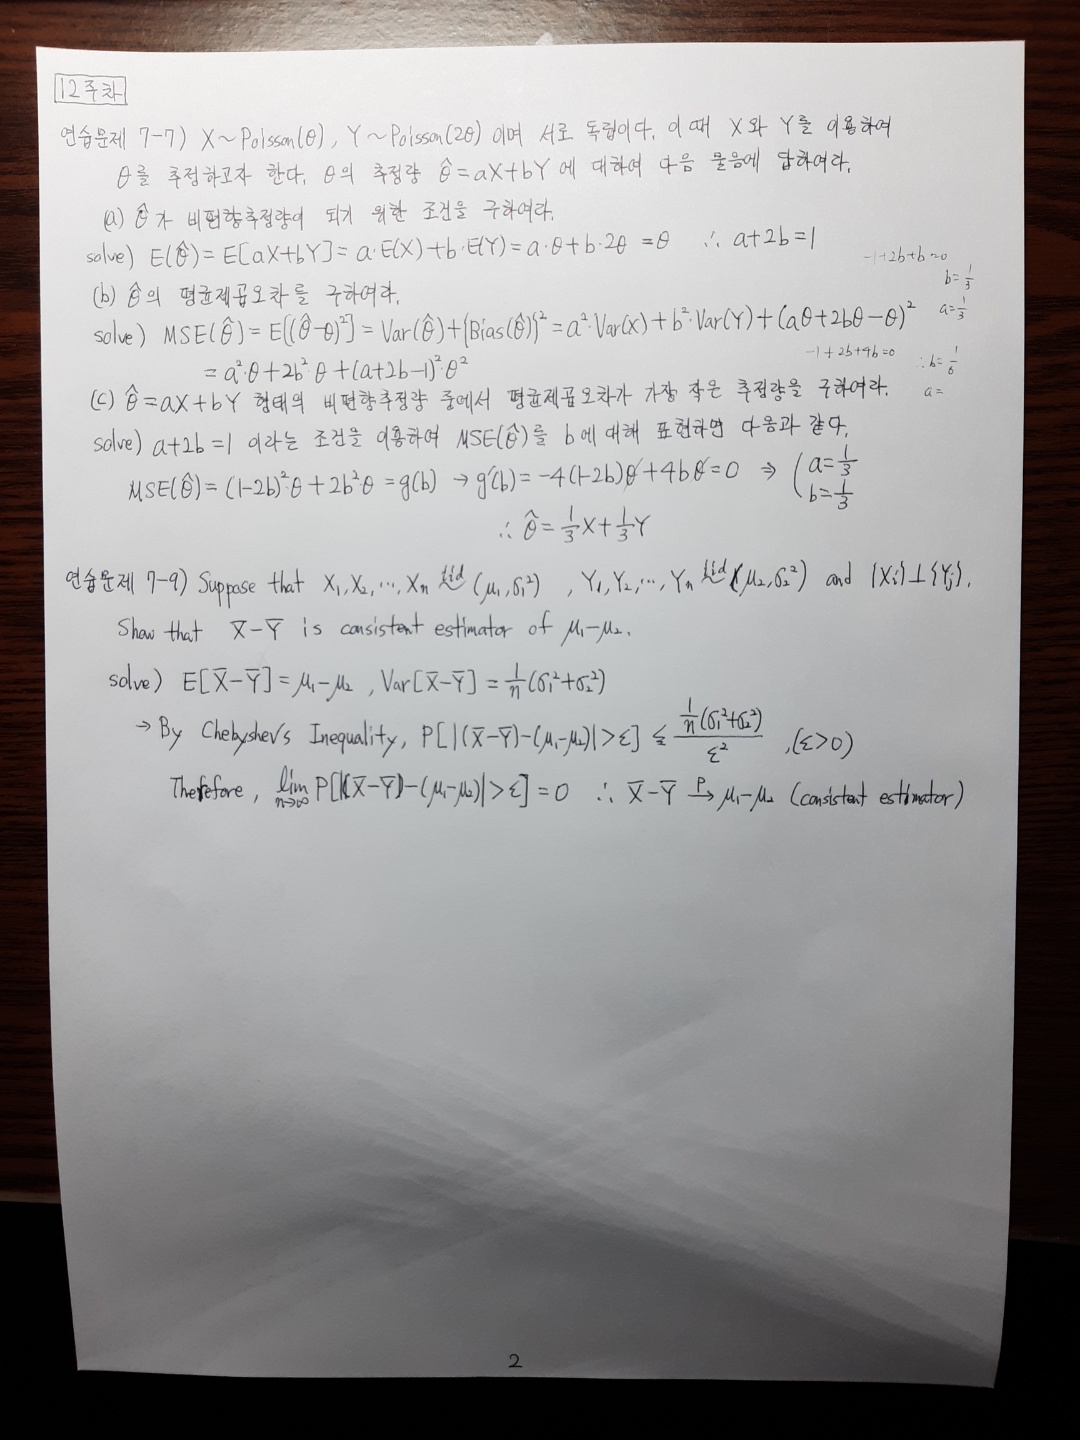 12주차
연습문제 7-7) X~Poisson(θ), Y~Poisson(2θ) 이며 서로 독립이다. 이 때 X와 Y를 이용하여
θ를 추정하고자 한다. θ의 추정량 θ̂=aX+bY 에 대하여 다음 물음에 답하여라.
(a) θ̂가 비편향추정량이 되기 위한 조건을 구하여라.
solve) E(θ̂)=E[aX+bY]=a·E(X)+b·E(Y)=a·θ+b·2θ=θ ∴ a+2b=1
-1+2b+b=0
b=1/3
a=1/3
(b) θ̂의 평균제곱오차를 구하여라.
solve) MSE(θ̂)=E[(θ̂-θ)²]=Var(θ̂)+{Bias(θ̂)}²=a²·Var(X)+b²·Var(Y)+(aθ+2bθ-θ)²
-1+2b+4b=0
∴b=1/6
a=
=a²·θ+2b²·θ+(a+2b-1)²·θ²
(c) θ̂=aX+bY 형태의 비편향추정량 중에서 평균제곱오차가 가장 작은 추정량을 구하여라.
solve) a+2b=1 이라는 조건을 이용하여 MSE(θ̂)를 b에 대해 표현하면 다음과 같다.
MSE(θ̂)=(1-2b)²·θ+2b²·θ=g(b) → g'(b)=-4(1-2b)θ+4bθ=0 ⇒ (a=1/3
b=1/3
∴ θ̂=1/3X+1/3Y
연습문제 7-9) Suppose that X₁,X₂,…,Xn iid~(μ₁,σ₁²), Y₁,Y₂,…,Yn iid~(μ₂,σ₂²) and {Xi}⊥{Yj}.
Show that X̄-Ȳ is consistent estimator of μ₁-μ₂.
solve) E[X̄-Ȳ]=μ₁-μ₂, Var[X̄-Ȳ]=1/n(σ₁²+σ₂²)
→ By Chebyshev's Inequality, P[|(X̄-Ȳ)-(μ₁-μ₂)|>ε] ≤ 1/n(σ₁²+σ₂²)/ε², (ε>0)
Therefore, lim n→∞ P[|(X̄-Ȳ)-(μ₁-μ₂)|>ε]=0 ∴ X̄-Ȳ →P μ₁-μ₂ (consistent estimator)
2